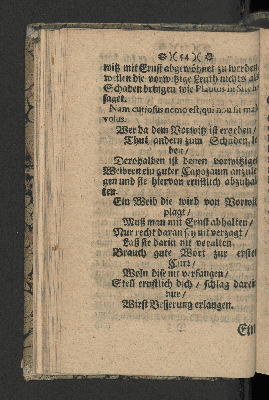 )( 54 )(
witz mit Ernst abgewöhnet zu werden
weilen die vorwitzige Leuth nichts als
Schaden bringen wie Plautus in Sticho
saget.
Nam curiosus nemo est, qui non sit male
volus.
Wer da dem Vorwitz ist ergeben /
Thut andern zum Schaden le
ben /
Derohalben ist denen vorwitzigen
Weibern ein guter Capozaun anzule
gen und sie hiervon ernstlich abzuhal
ten.
Ein Weib die wird von Vorwitz
plagt /
Muß man mit Ernst abhalten /
Nur recht daran sey nit verzagt /
Laß sie darin nit veralten.
Brauch gute Wort zur ersten
Cur /
Woln dise nit verfangen /
Stell ernstlich dich / schlag darein
nur /
Wirst Besserung erlangen.
Ein